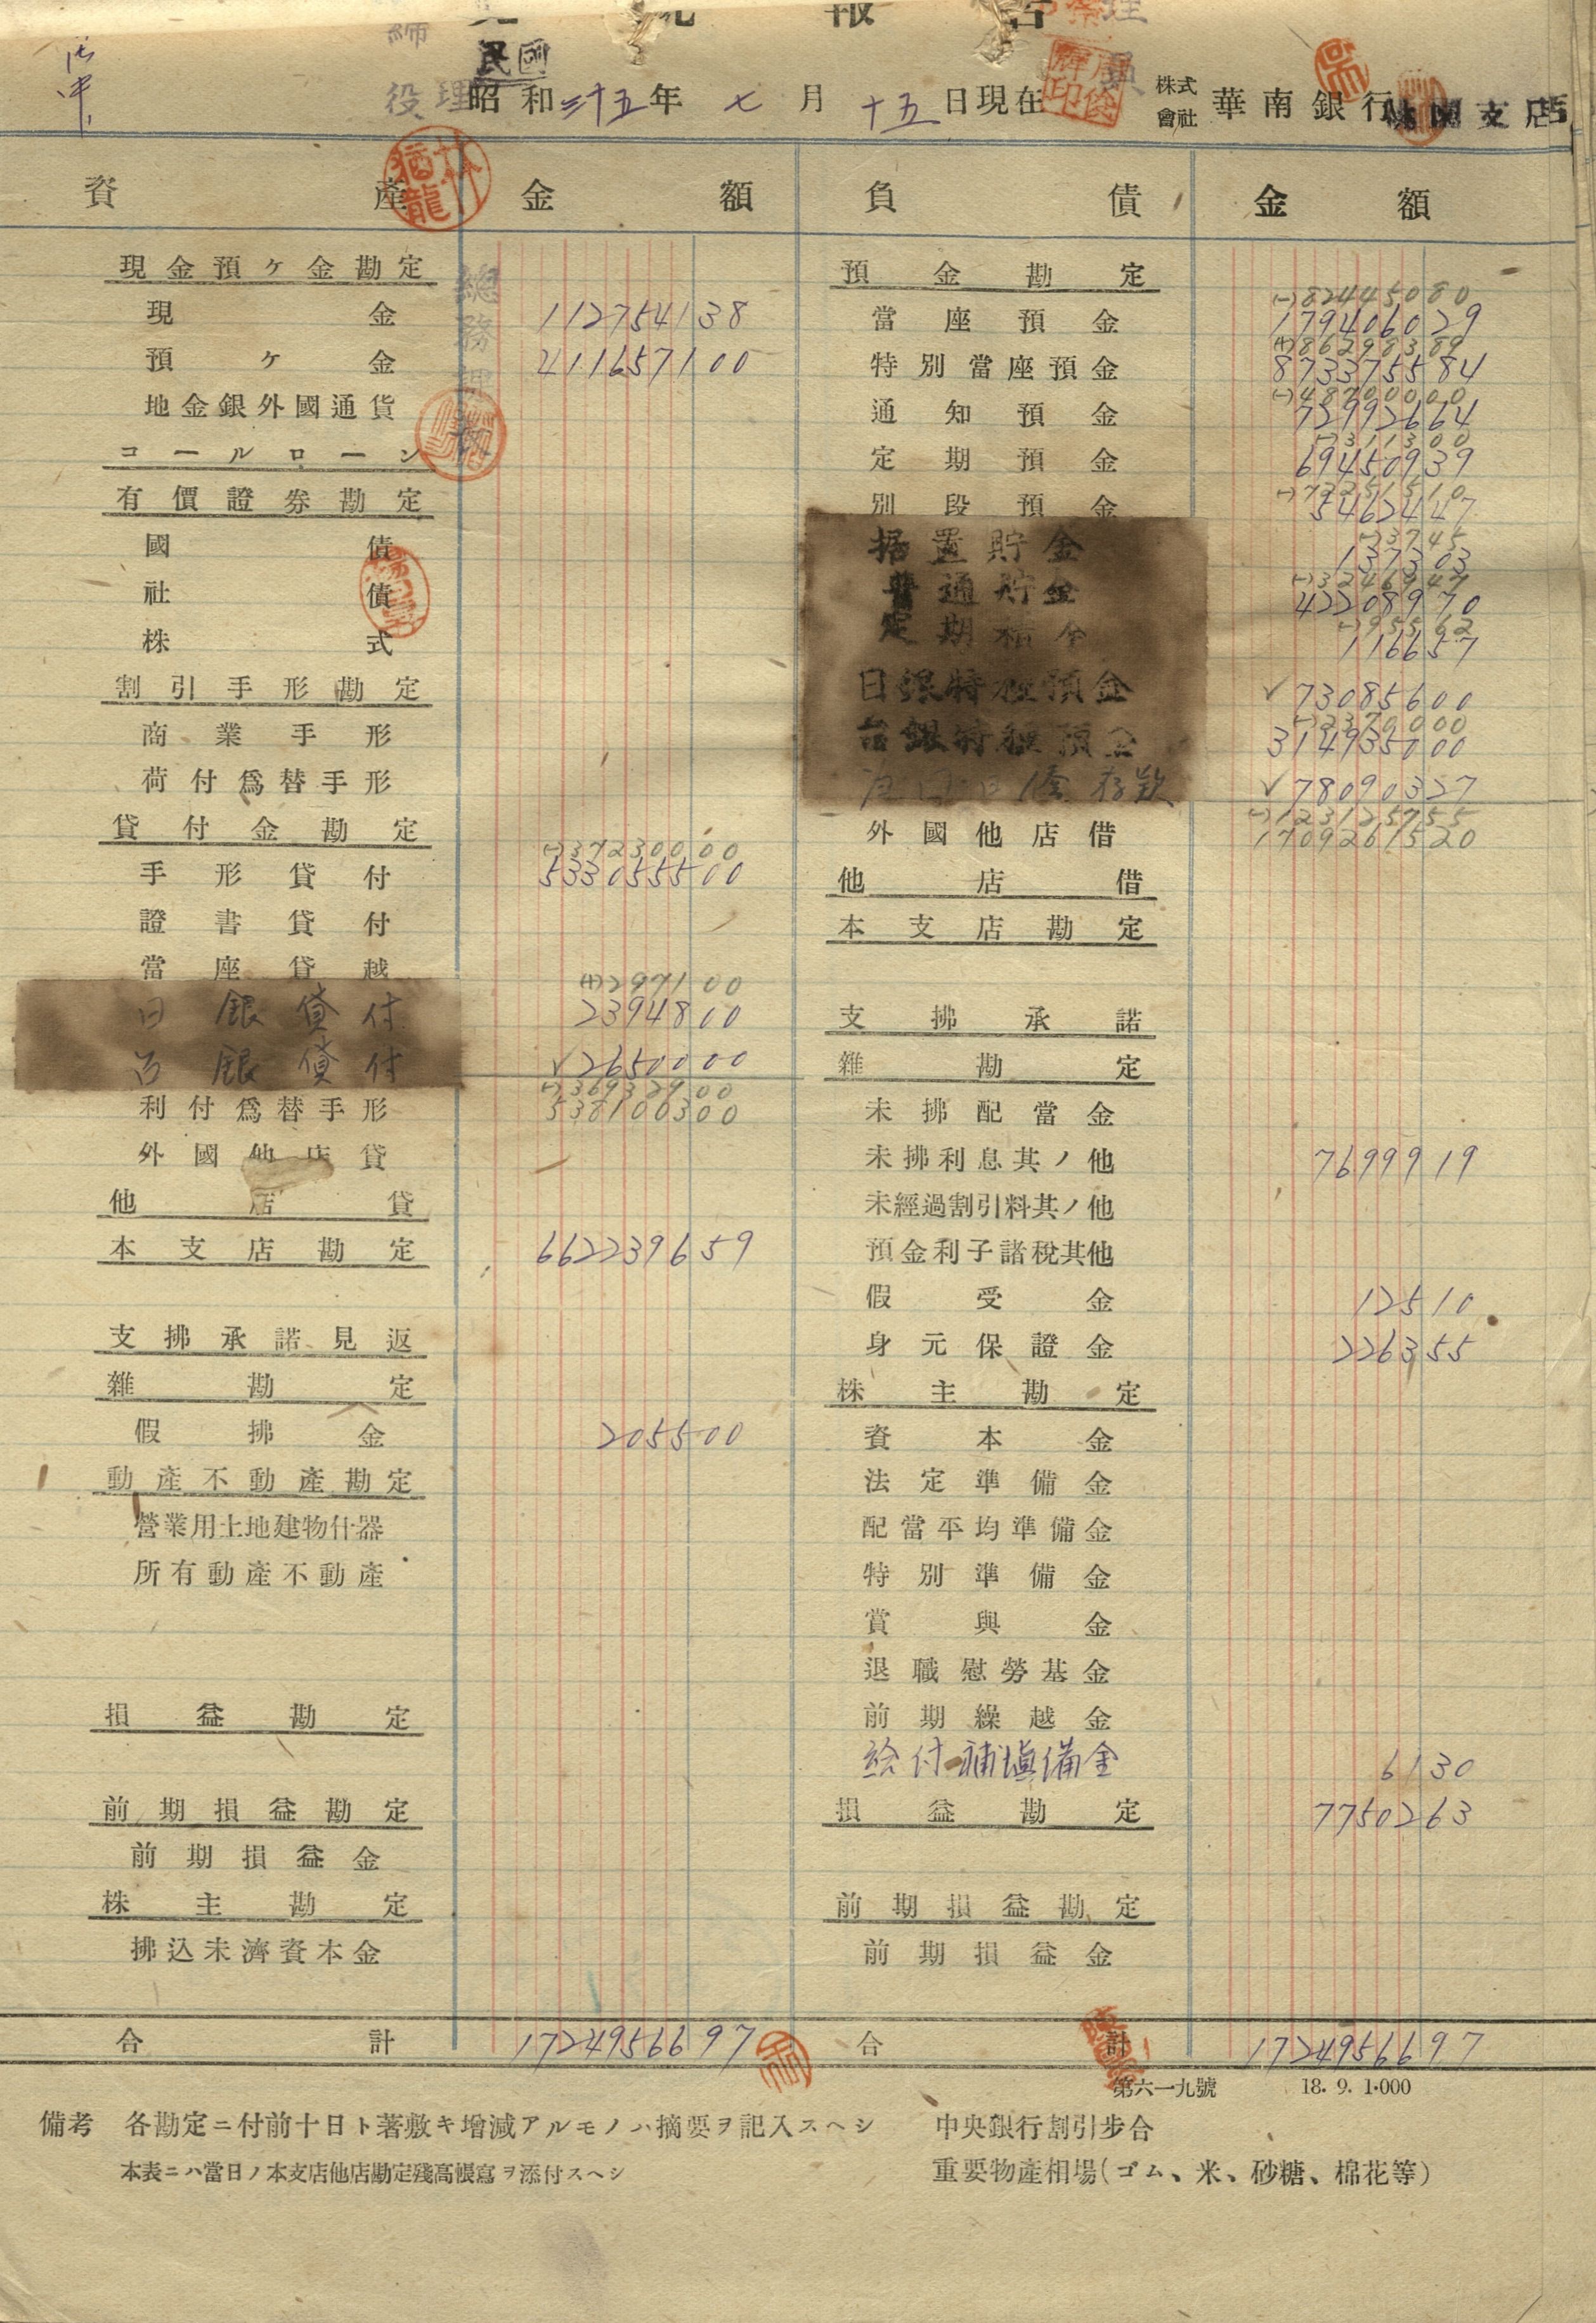 報告
民國
昭和三十五年 七月 十五日現在 株式會社 華南銀行 支店
資產 金額 負債 金額
現金預ヶ金勘定 預金勘定
(-)82445080
現金 112754138 當座預金 179406029
(+)86298389
預ヶ金 411657100 特別當座預金 873375584
(-)48700000
地金銀外國通貨 通知預金 72992664
(-)311300
コールローン 定期預金 69450939
(-)72251510
有價證券勘定 別段預金 5462447
(-)3745
國債 据置貯金 137303
(-)3246947
社債 普通貯金 42208970
(-)95562
株式 定期積金 116657
割引手形勘定 日銀特種預金 ✓73085600
(-)2370000
商業手形 台銀特種預金 314935000
荷付爲替手形 存款 ✓78090327
(-)123125755
貸付金勘定 外國他店借 1709261520
(-)37230000
手形貸付 533055500 他店借
證書貸付 本支店勘定
當座貸越
(+)297100
日銀貸付 2394800 支拂承諾
台銀貸付 ✓2650000 雜勘定
(-)36932900
538100300
利付爲替手形 未拂配當金
外國他店貸 未拂利息其ノ他 7699919
他店貸 未經過割引料其ノ他
本支店勘定 662239659 預金利子諸稅其他
假受金 12510
支拂承諾見返 身元保證金 226355
雜勘定 株主勘定
假拂金 205500 資本金
動產不動產勘定 法定準備金
營業用土地建物什器 配當平均準備金
所有動產不動產 特別準備金
賞與金
退職慰勞基金
損益勘定 前期繰越金
給付補塡備金 6130
前期損益勘定 損益勘定 7750263
前期損益金
株主勘定 前期損益勘定
拂込未濟資本金 前期損益金
合計 1724956697 合計 1724956697
第六一九號 18.9.1.000
備考 各勘定ニ付前十日ト著敷キ增減アルモノハ摘要ヲ記入スヘシ 中央銀行割引步合
本表ニハ當日ノ本支店他店勘定殘高帳寫ヲ添付スヘシ 重要物產相場(ゴム、米、砂糖、棉花等)